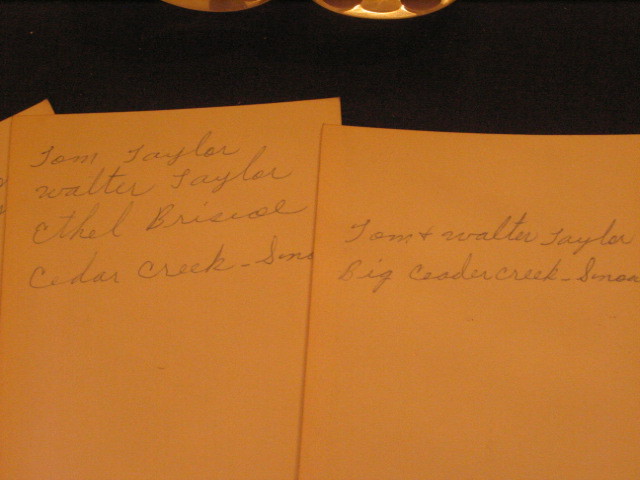 Tom Taylor
Walter Taylor
Ethel Briscoe
Cedar Creek -
Tom & Walter Taylor
Big Ceader creek -